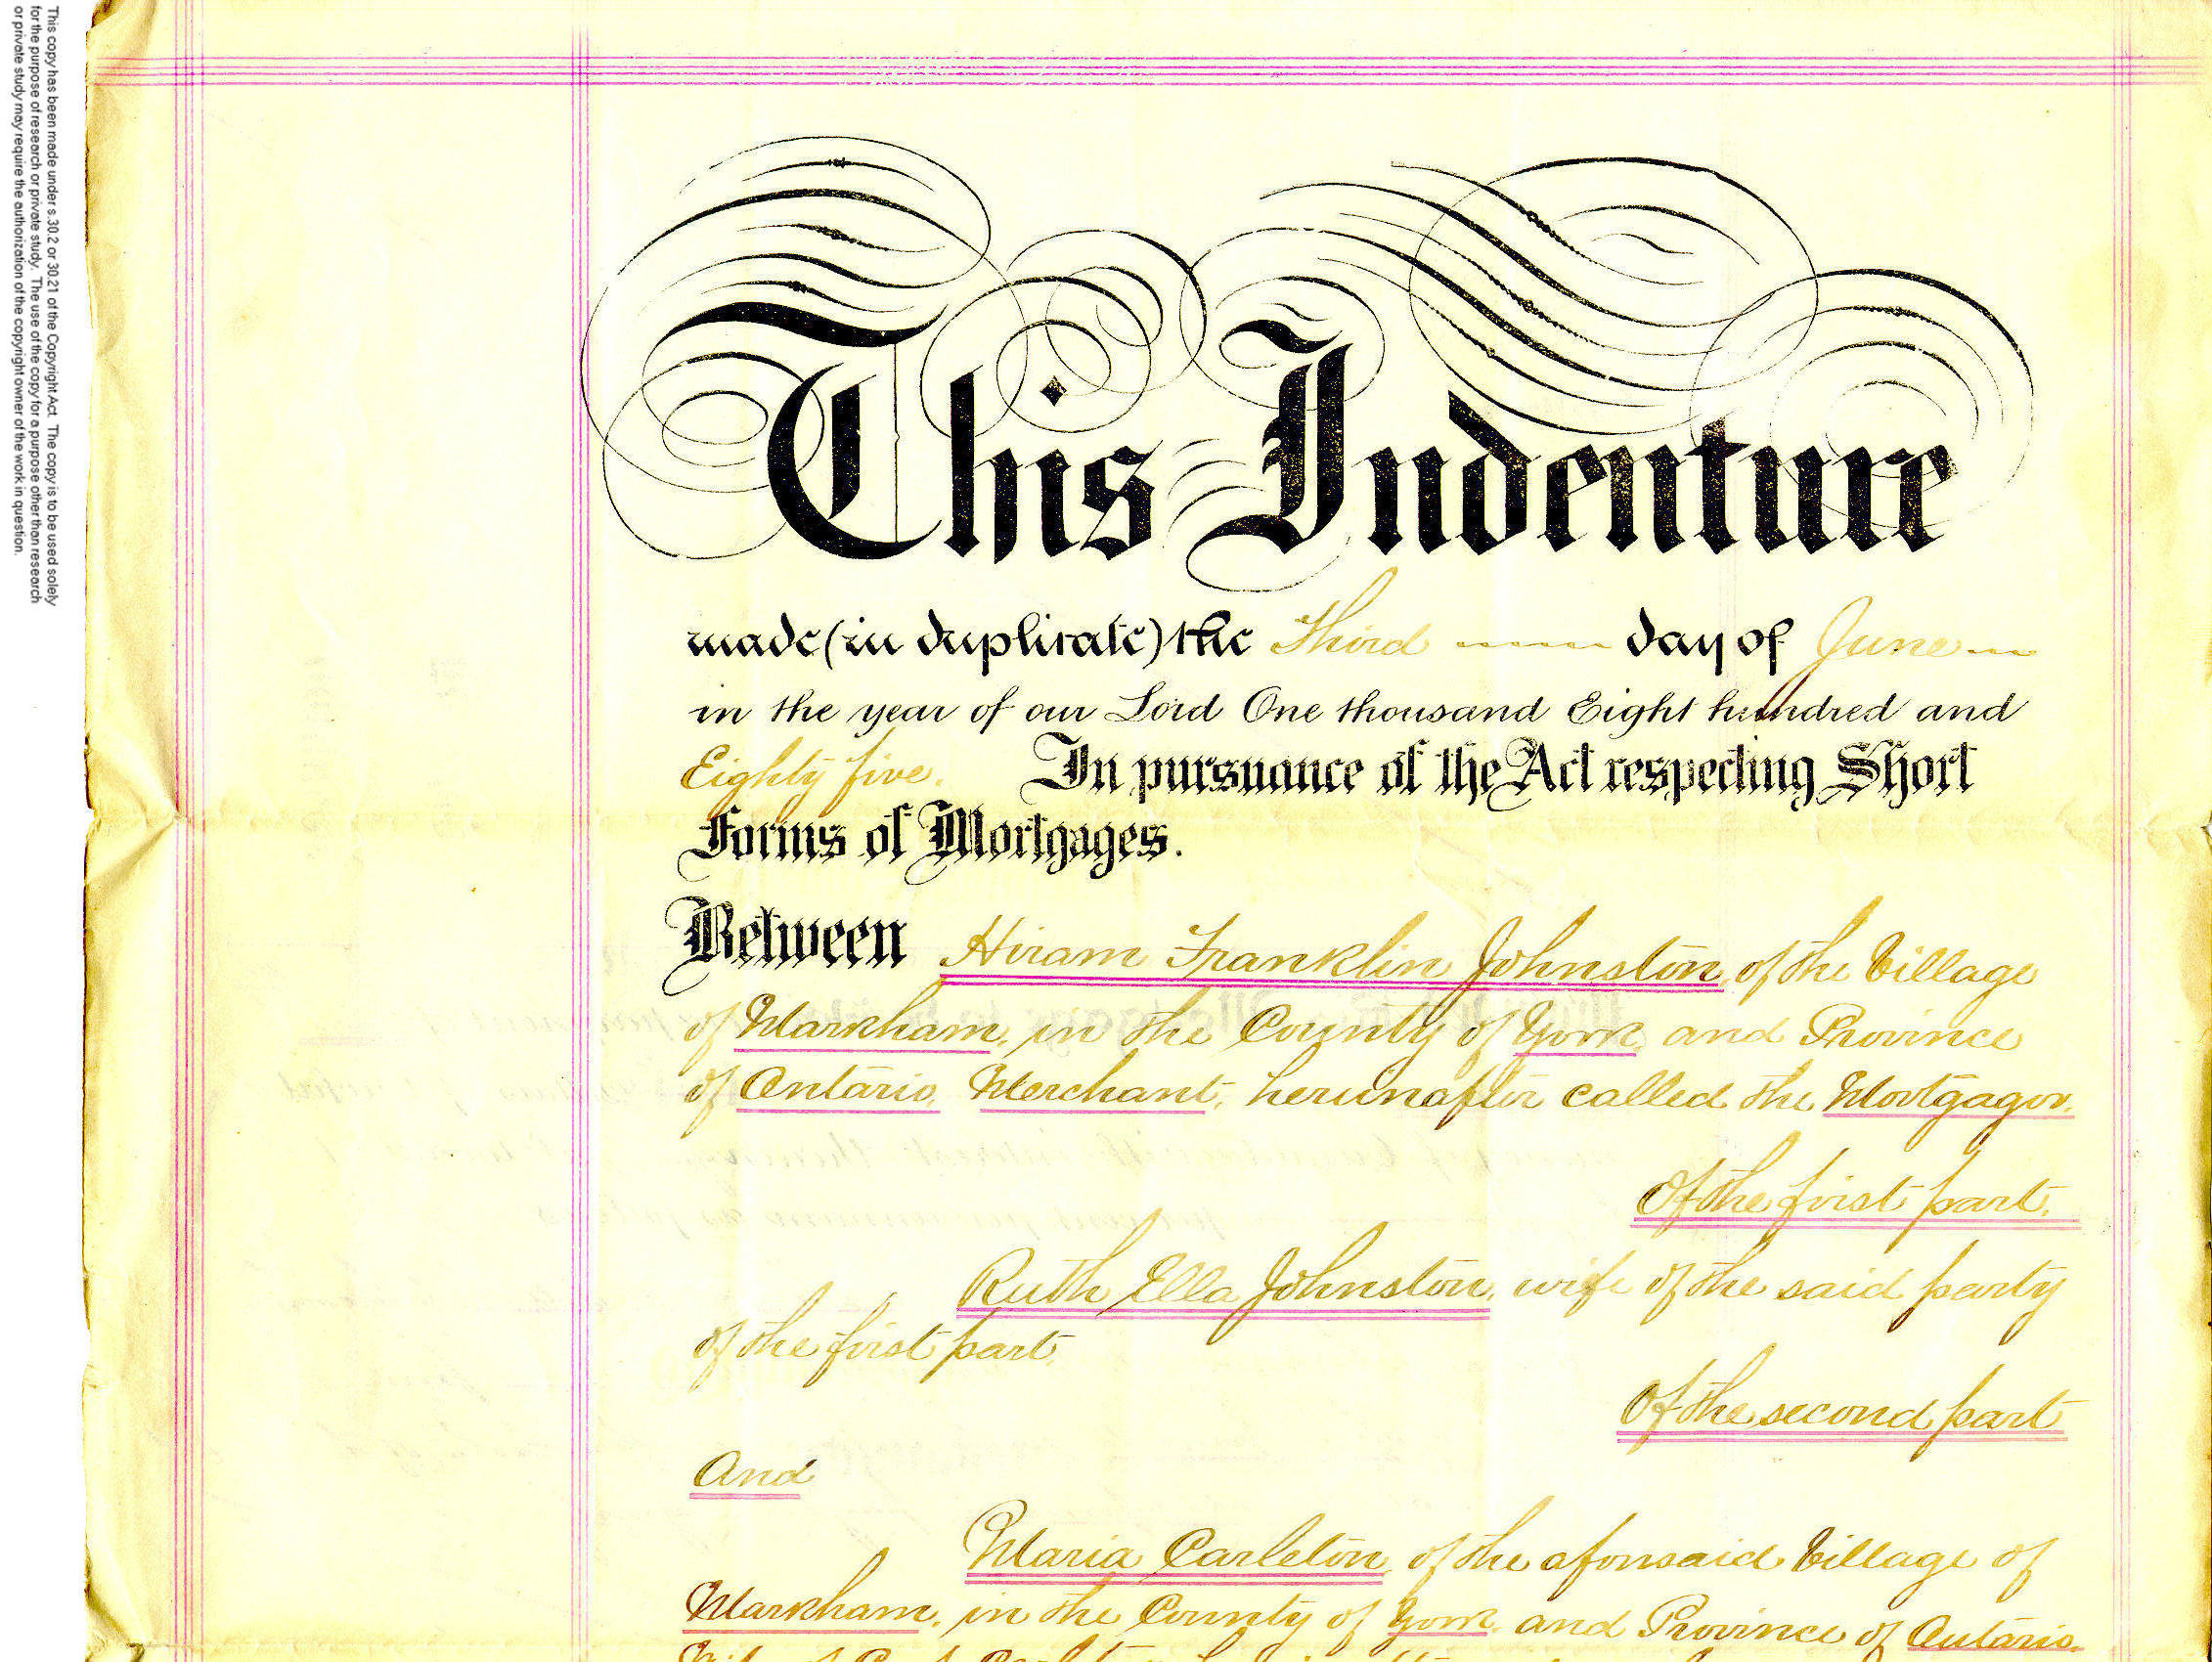 This copy has been made under s.30.2 or 30.21 of the Copyright Act. The copy is to be used solely
for the purpose of research or private study. The use of the copy for a purpose other than research
or private study may require the authorization of the copyright owner of the work in question.
This Indenture
made (in duplicate) the Third day of June
in the year of our Lord One thousand Eight hundred and
Eighty five. In pursuance of the Act respecting Short
Forms of Mortgages.
Between Hiram Franklin Johnston, of the Village
of Markham, in the County of York and Province
of Ontario, Merchant, hereinafter called the Mortgagor.
Of the first part.
Ruth Ella Johnston, wife of the said party
of the first part
Of the second part
And
Maria Carleton, of the aforesaid Village of
Markham, in the County of York, and Province of Ontario,